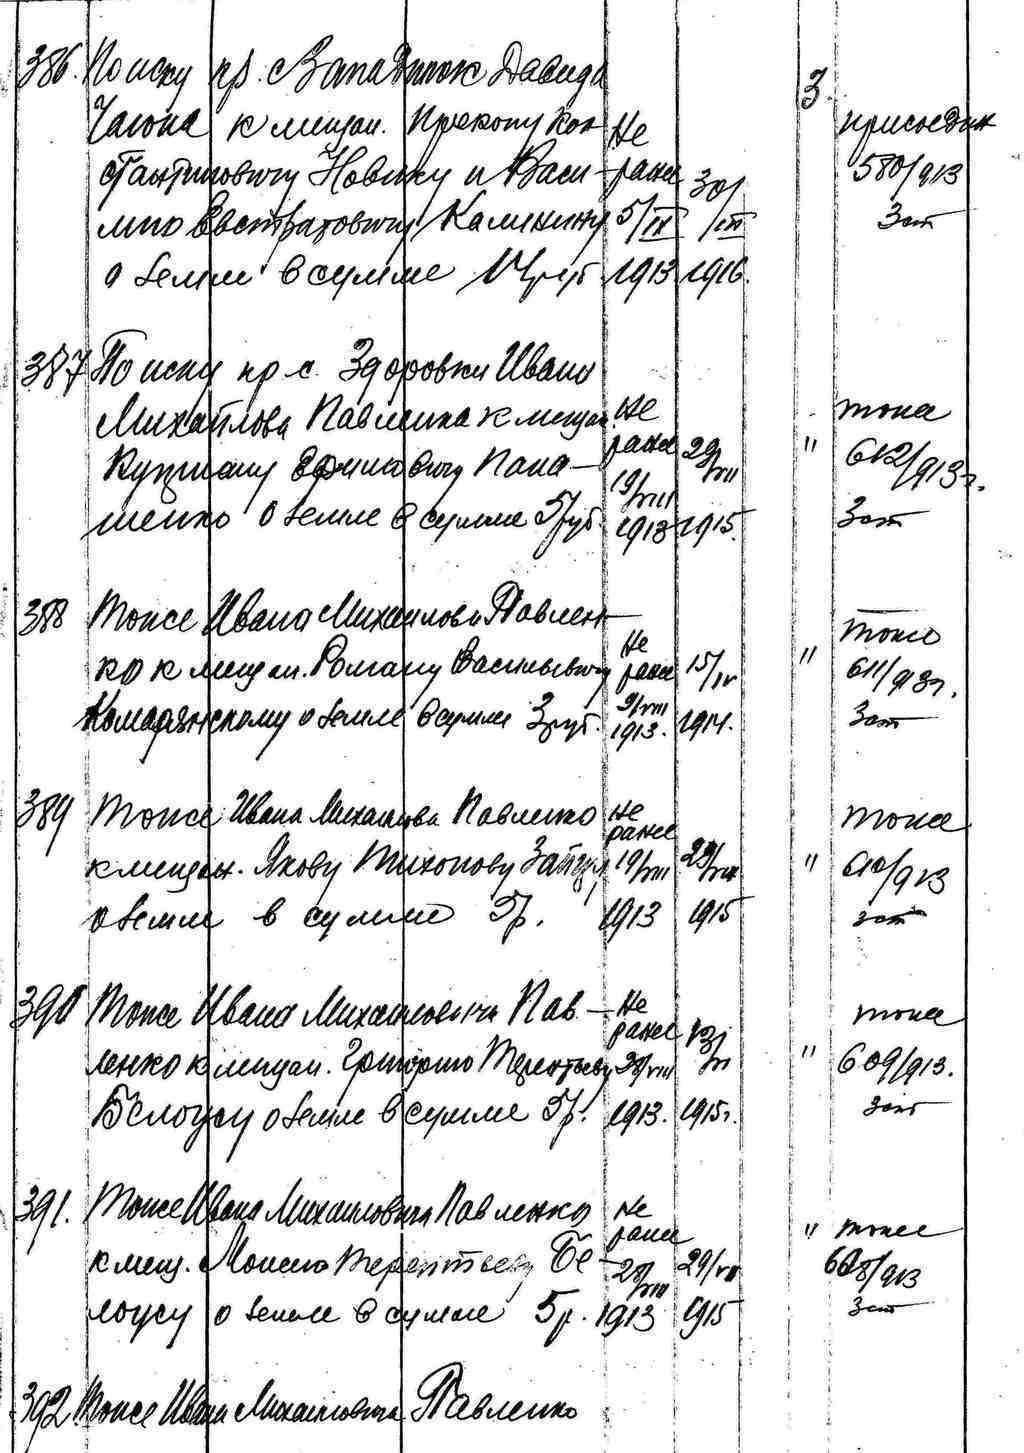 386. По иску кр. с. Западинок Давида 3.
к мещан. Прокопу Кон- Не присоедин
стантиновичу Новику и Васи- ранее 30/ 580/913
лию Евстратовичу Калинину 5/IX /III Зат
о земле в сумме 14 руб 1913 1916.
387 По иску кр. с. Здоровки Ивана
Михайлова Павленка к мещан. Не тоже
Кузьме Ефимовичу Пана- ранее 29/VII " 612/913г.
19/VIII
шенко о земле в сумме 5 руб. 1913 1915. Зат
388 Тоже Ивана Михайлова Павлен- тоже
ко к мещан. Роману Васильевичу Не ранее 15/IV " 611/913г.
о земле в сумме 3 руб. 9/VIII 1913. 1914. Зат
389 Тоже Ивана Михайлова Павленко Не ранее тоже
к мещан. Якову Тихонову 19/VIII 29/VII " 610/913
о земле в сумме 5 р. 1913 1915 зат
390 Тоже Ивана Михайловича Пав- Не ранее тоже
ленко к мещан. Григорию Терентьеву 28/VIII " 609/913.
Белоусу о земле в сумме 5 р. 1913. 1915г. зат
391. Тоже Ивана Михайловича Павленко Не ранее " тоже
к мещ. Моисею Терентьеву Бе- 28/VIII 29/VII 608/913
лоусу о земле в сумме 5 р. 1913 1915 Зат
392 Тоже Ивана Михайловича Павленко